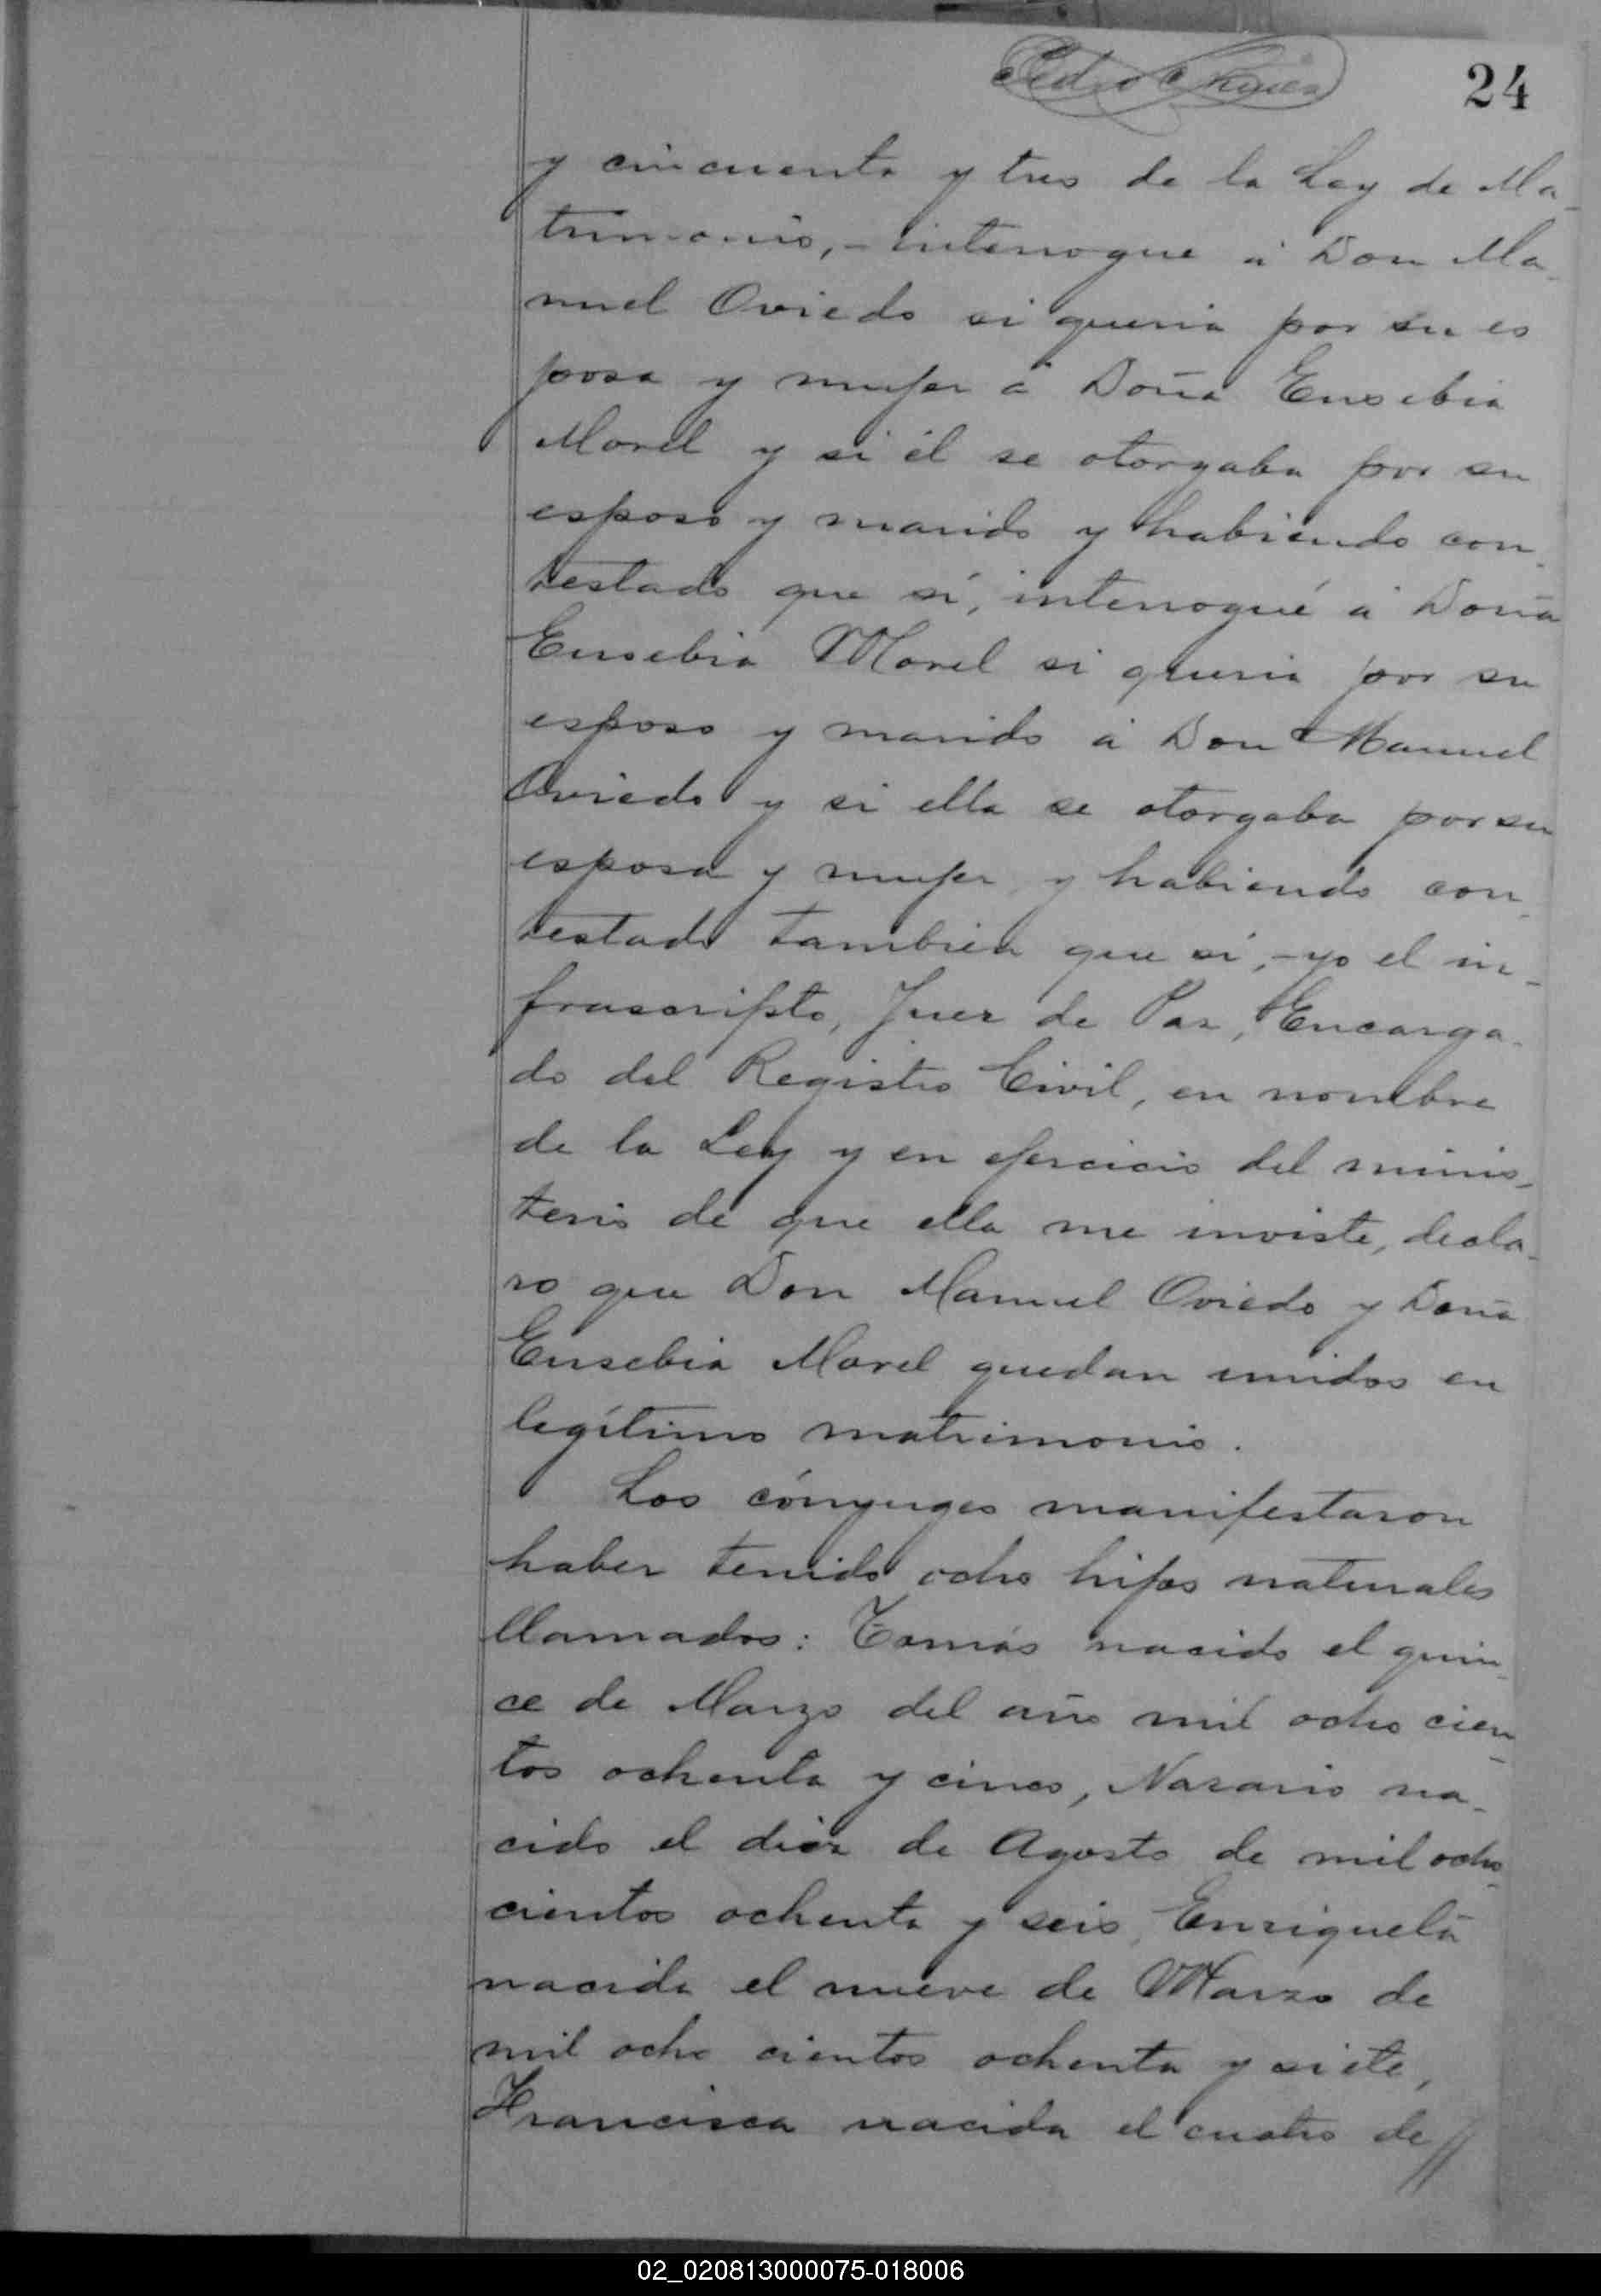 24
y cincuenta y tres de la Ley de Ma-
trimonio,- interrogue á Don Ma-
nuel Oviedo si queria por su es
posa y mujer á Doña Eusebia
Morel y si él se otorgaba por su
esposo y marido y habiendo con-
testado que sí, interrogué á Doña
Eusebia Morel si queria por su
esposo y marido á Don Manuel
Oviedo y si ella se otorgaba por su
esposa y mujer y habiendo con-
testado tambien que sí,- yo el in-
frascripto, Juez de Paz, Encarga-
do del Registro Civil, en nombre
de la Ley y en ejercicio del minis-
terio de que ella me inviste, decla-
ro que Don Manuel Oviedo y Doña
Eusebia Morel quedan unidos en
legítimo matrimonio.
Los cónyuges manifestaron
haber tenido ocho hijos naturales
llamados: Tomás nacido el quin-
ce de Marzo del año mil ocho cien-
tos ochenta y cinco, Nazario na-
cido el diez de Agosto de mil ocho-
cientos ochenta y seis, Enriqueta
nacida el nueve de Marzo de
mil ocho cientos ochenta y siete,
Francisca nacida el cuatro de //
02_020813000075-018006